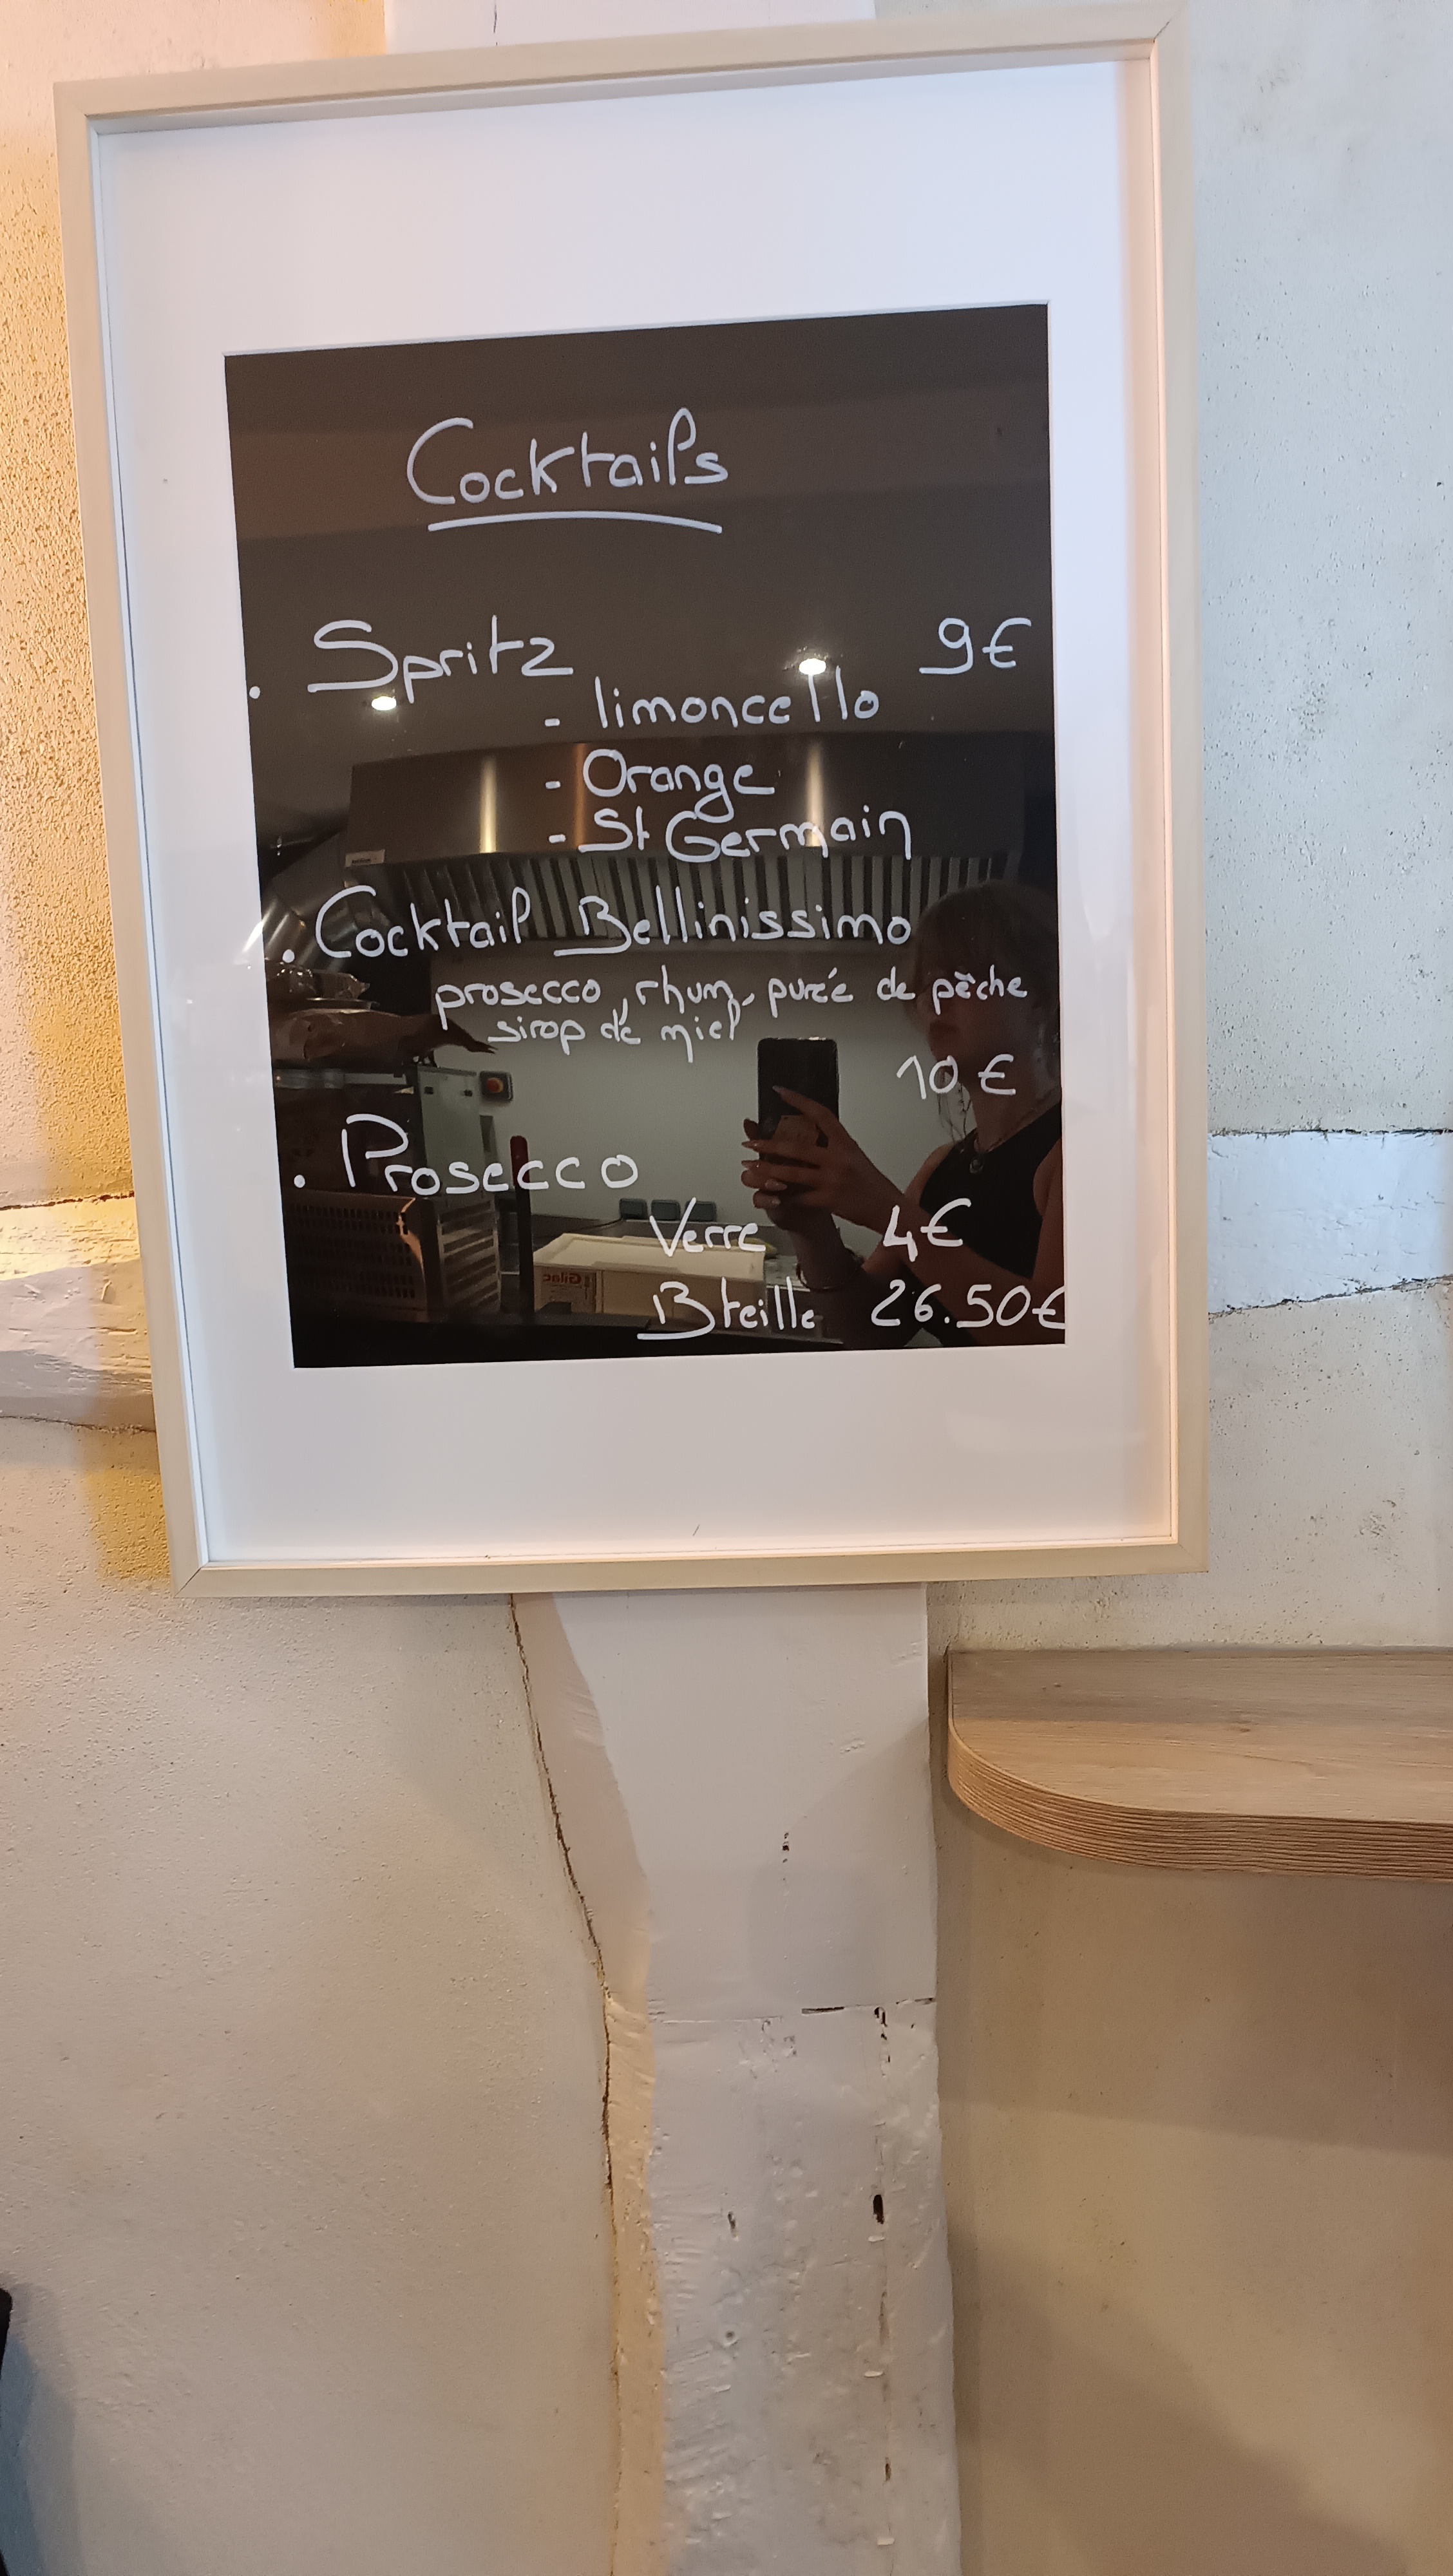 Cocktails
. Spritz 9€
- limoncello
- Orange
- St Germain
. Cocktail Bellinissimo
prosecco, rhum, purée de pêche
sirop de miel
10 €
. Prosecco
Verre 4€
Bteille 26.50€
Gilac